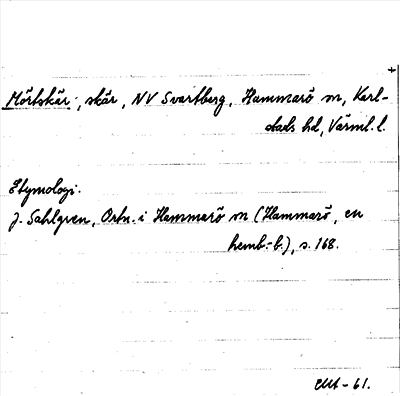 +
Mörtskär, skär, NV Svartberg, Hammarö sn, Karl-
stads hd, Värml. l.
Etymologi.
J. Sahlgren, Ortn. i Hammarö sn (Hammarö, en
hemb.-b.), s. 168.
-61.